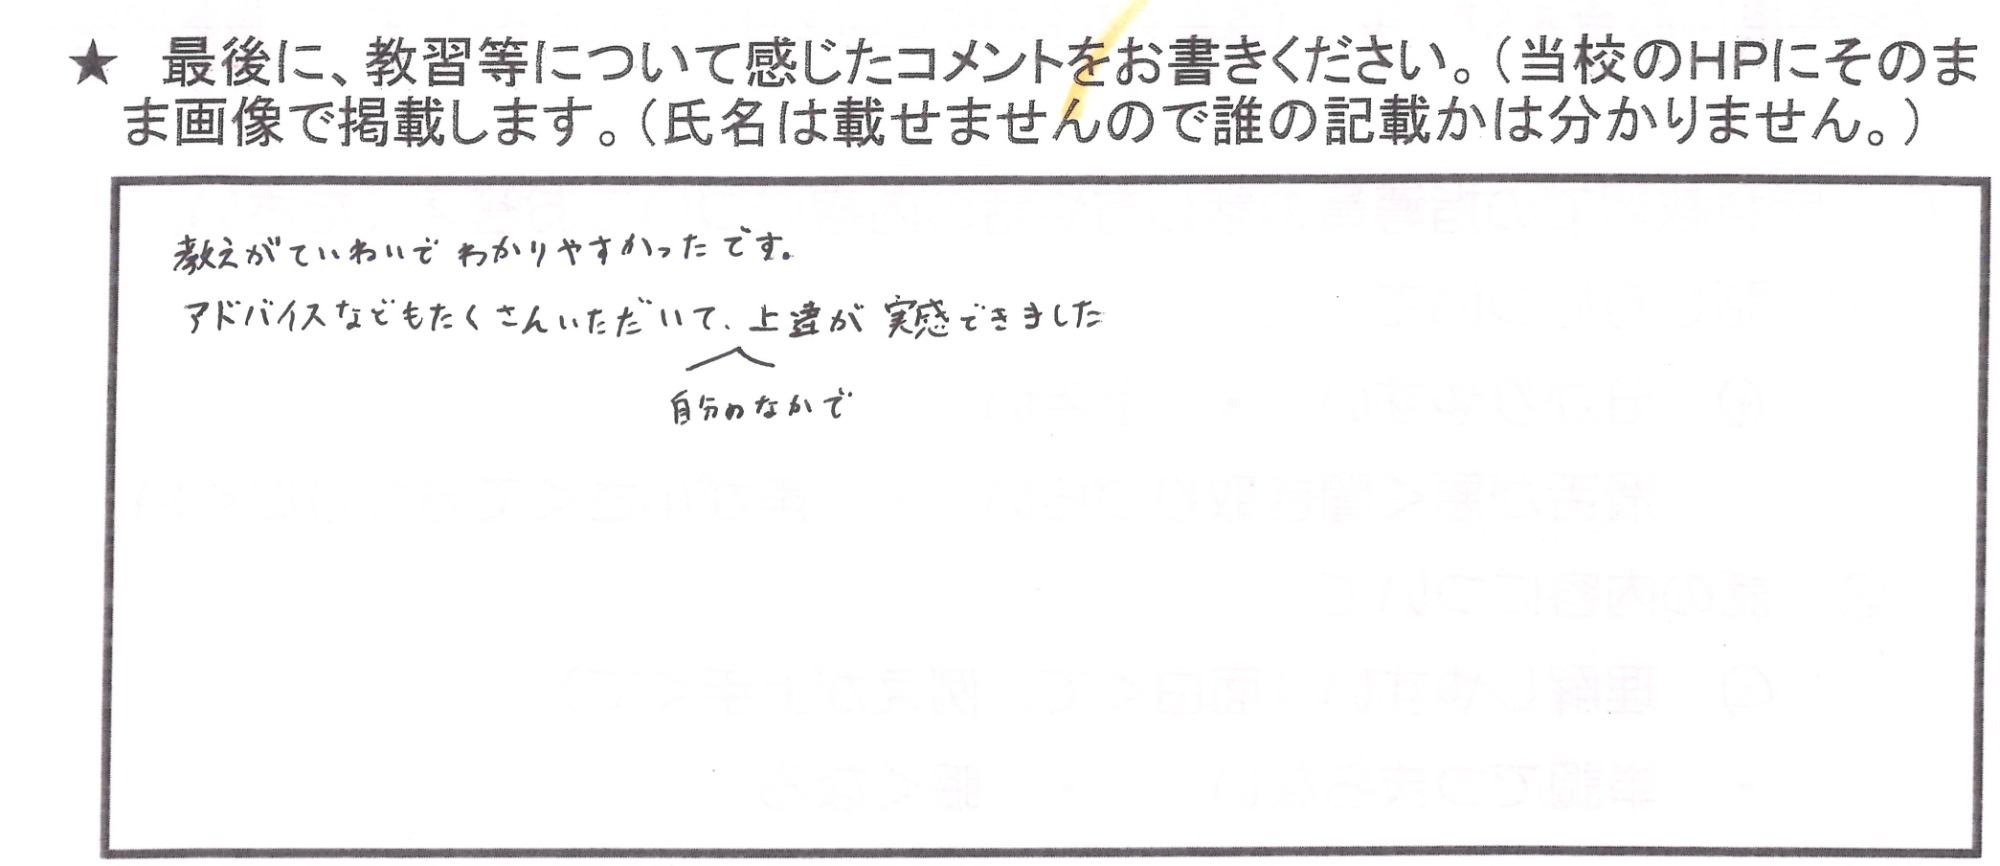 ★ 最後に、教習等について感じたコメントをお書きください。（当校のHPにそのま
ま画像で掲載します。（氏名は載せませんので誰の記載かは分かりません。）
教えがていねいでわかりやすかったです。
アドバイスなどもたくさんいただいて、上達が実感できました
自分のなかで